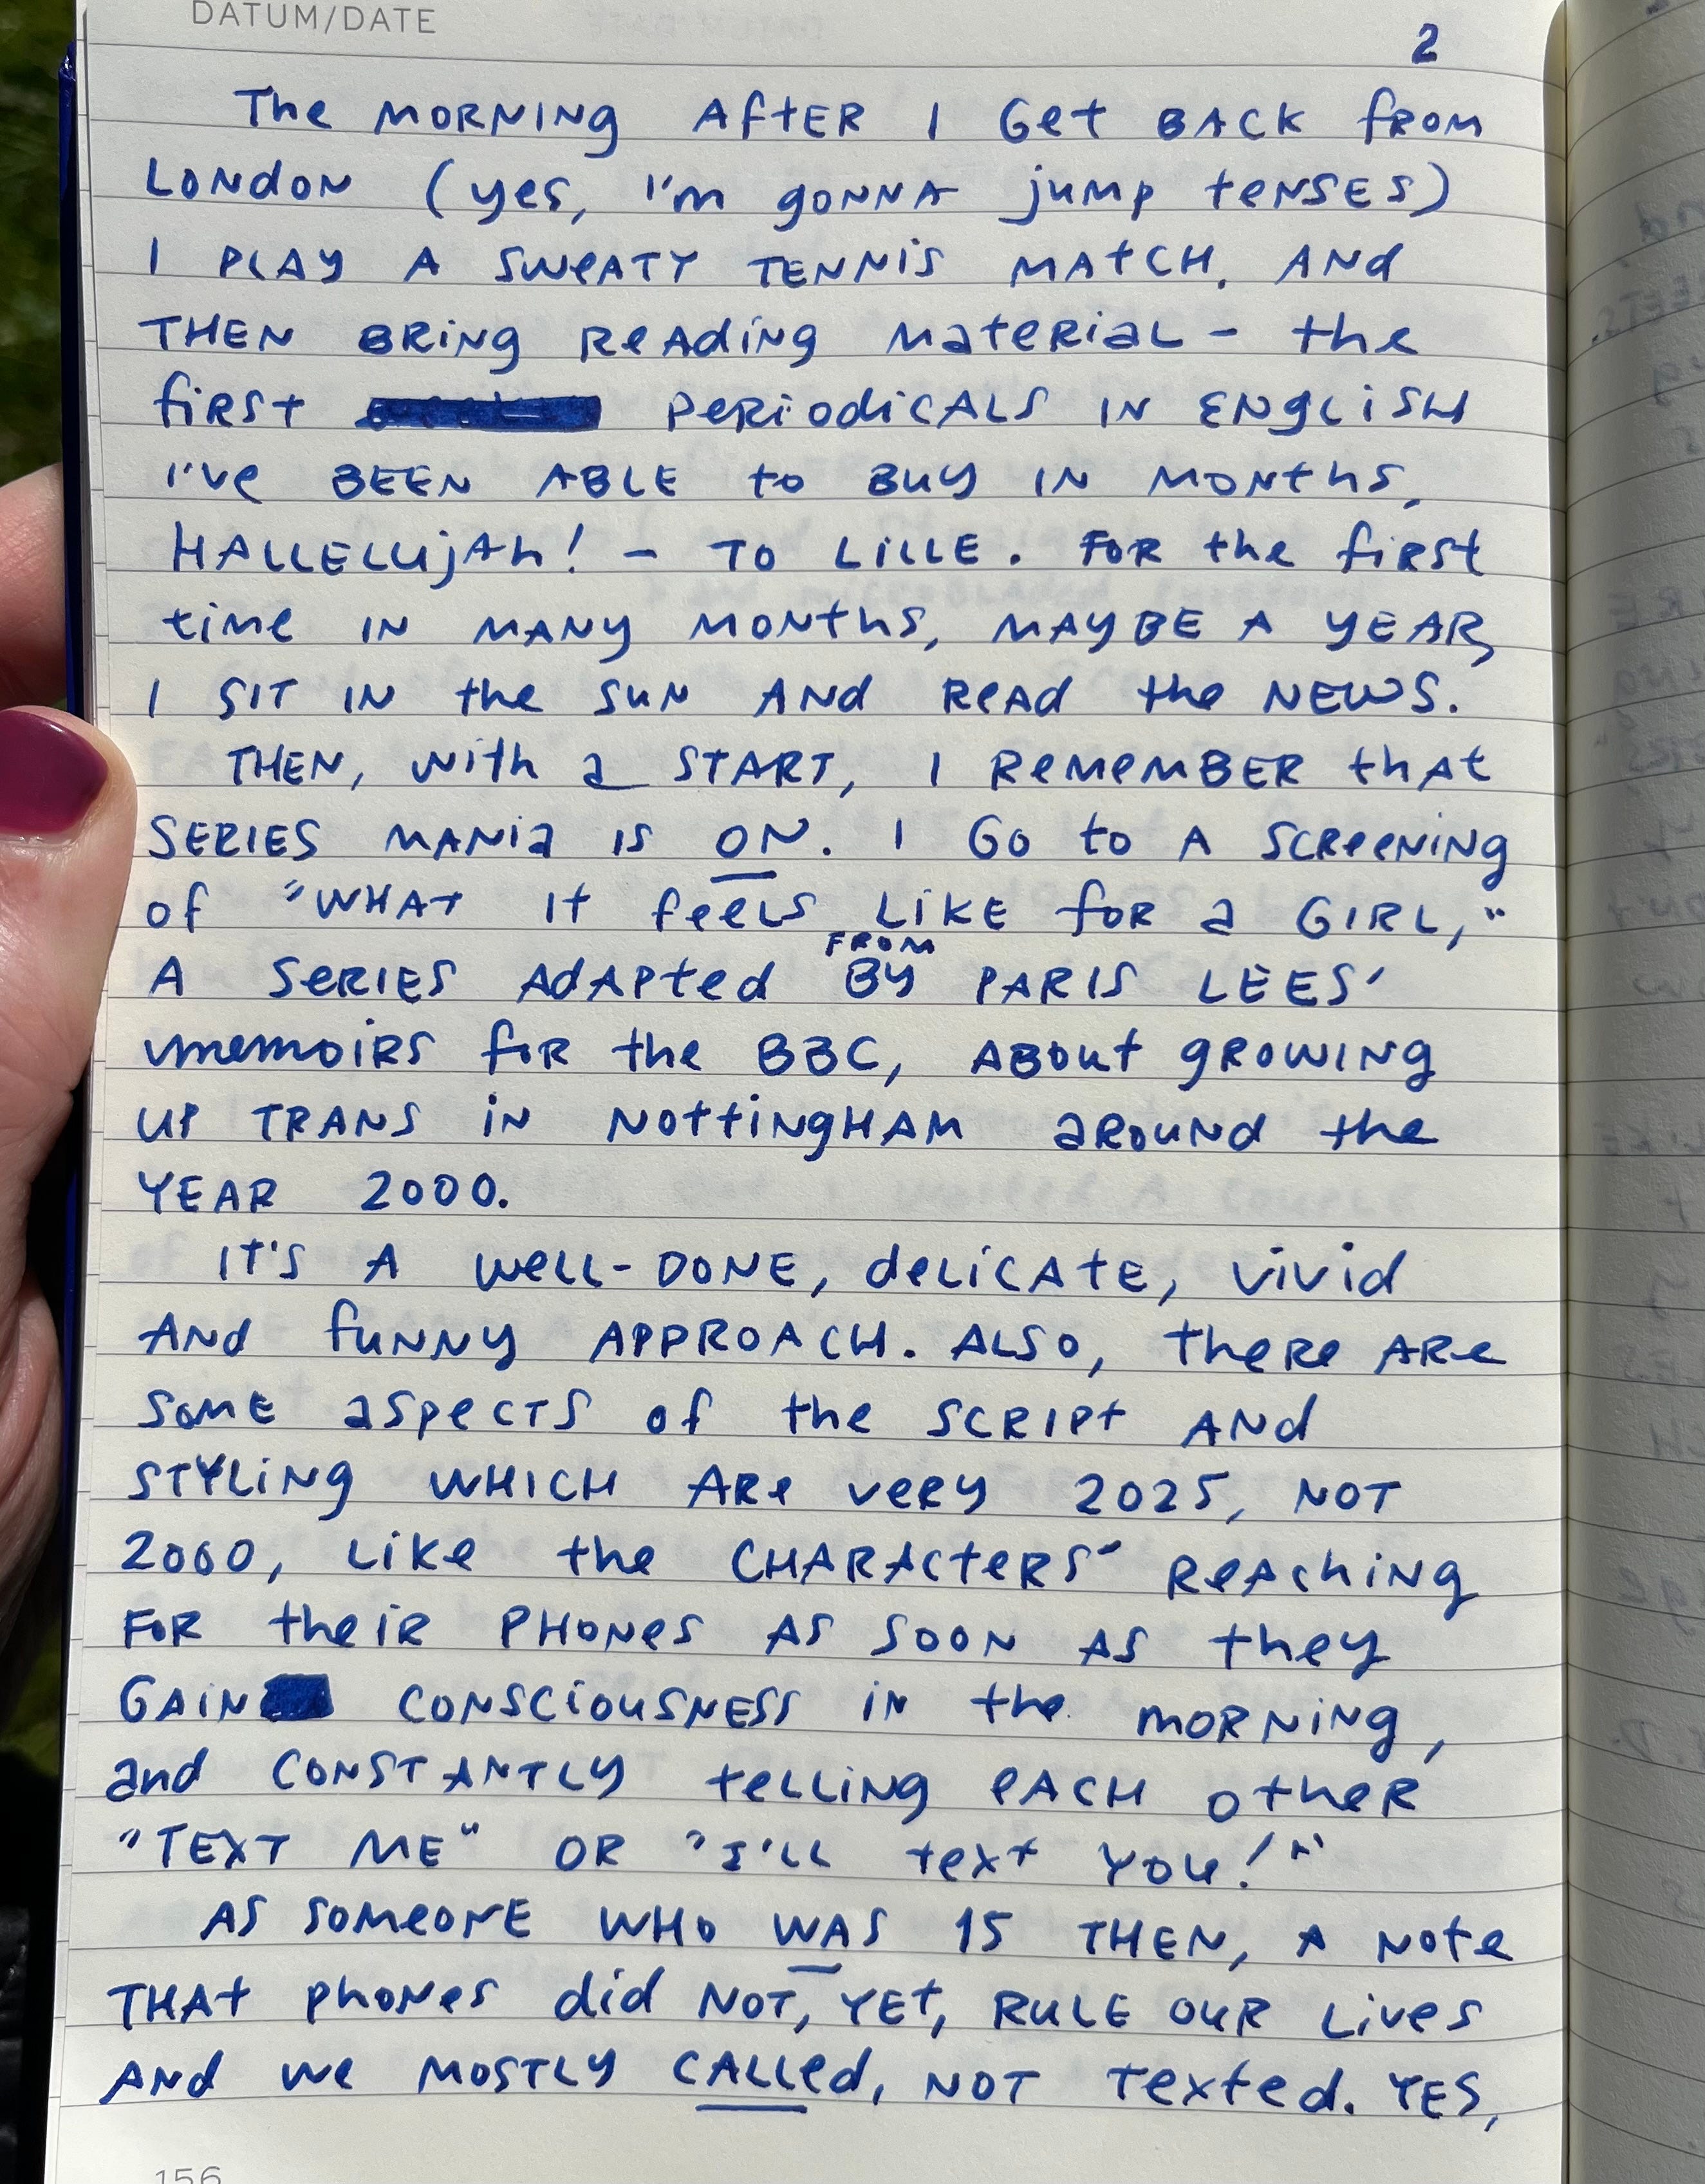 DATUM/DATE
2
The MORNING AFTER I Get BACK fROM
LONDON (yes, I'm gONNA jump tENSES)
I PLAY A SWEATY TENNIS MATCH. AND
THEN BRING READING MATERIAL – the
first PERIODICALS IN ENGLISH
I've BEEN ABLE to BUY IN MONTHS,
HALLELUJAH! – TO LILLE. FOR the first
time IN MANY MONTHS, MAYBE A YEAR,
I SIT IN the SUN AND READ the NEWS.
THEN, with a START, I REMEMBER that
SERIES MANIA IS ON. I GO to A SCREENING
of "WHAT It feels LIKE for a GIRL,"
FROM
A SERIES ADAPTED BY PARIS LEES'
memoirs for the BBC, ABOUT GROWING
UP TRANS in NOTTINGHAM around the
YEAR 2000.
IT'S A WELL-DONE, delicate, vivid
AND funny APPROACH. ALSO, there ARE
SOME aspects of the SCRIPT AND
STYLING WHICH ARE very 2025, NOT
2000, LIKE the CHARACTERS' REACHING
FOR their PHONES AS SOON AS they
GAIN CONSCIOUSNESS in the MORNING,
and CONSTANTLY telling EACH other
"TEXT ME" OR "I'LL text YOU!"
AS SOMEONE WHO WAS 15 THEN, A Note
THAT phones did NOT, YET, RULE OUR Lives
AND we MOSTLY CALLED, NOT Texted. YES,
156